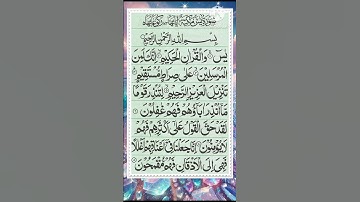 بِسْمِ اللهِ الرَّحْمٰنِ الرَّحِيْمِ
يٰسٓ وَالْقُرْاٰنِ الْحَكِيْمِ اِنَّكَ لَمِنَ
الْمُرْسَلِيْنَ عَلٰى صِرَاطٍ مُّسْتَقِيْمٍ
تَنْزِيْلَ الْعَزِيْزِ الرَّحِيْمِ لِتُنْذِرَ قَوْمًا
مَّآ اُنْذِرَ اٰبَآؤُهُمْ فَهُمْ غٰفِلُوْنَ
لَقَدْ حَقَّ الْقَوْلُ عَلٰٓى اَكْثَرِهِمْ فَهُمْ
لَا يُؤْمِنُوْنَ اِنَّا جَعَلْنَا فِيْٓ اَعْنَاقِهِمْ اَغْلٰلًا
فَهِيَ اِلَى الْاَذْقَانِ فَهُمْ مُّقْمَحُوْنَ